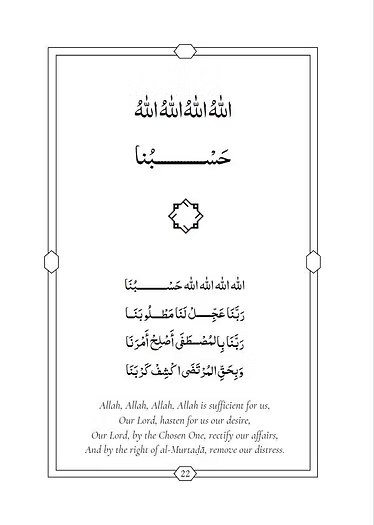 اللهُ اللهُ اللهُ اللهُ
حَسْـــــبُنا
الله الله الله الله حَسْـــــبُنَا
رَبَّنَا عَجِّـــلْ لَنَا مَطْـلُوبَنَـا
رَبَّنَا بِالمُصْـطَفَى أَصْلِحْ أَمْرَنَا
وَبِحَقِّ المُرْتَضَى اكْشِفْ كَرْبَنَا
Allah, Allah, Allah, Allah is sufficient for us,
Our Lord, hasten for us our desire,
Our Lord, by the Chosen One, rectify our affairs,
And by the right of al-Murtaḍā, remove our distress.
22